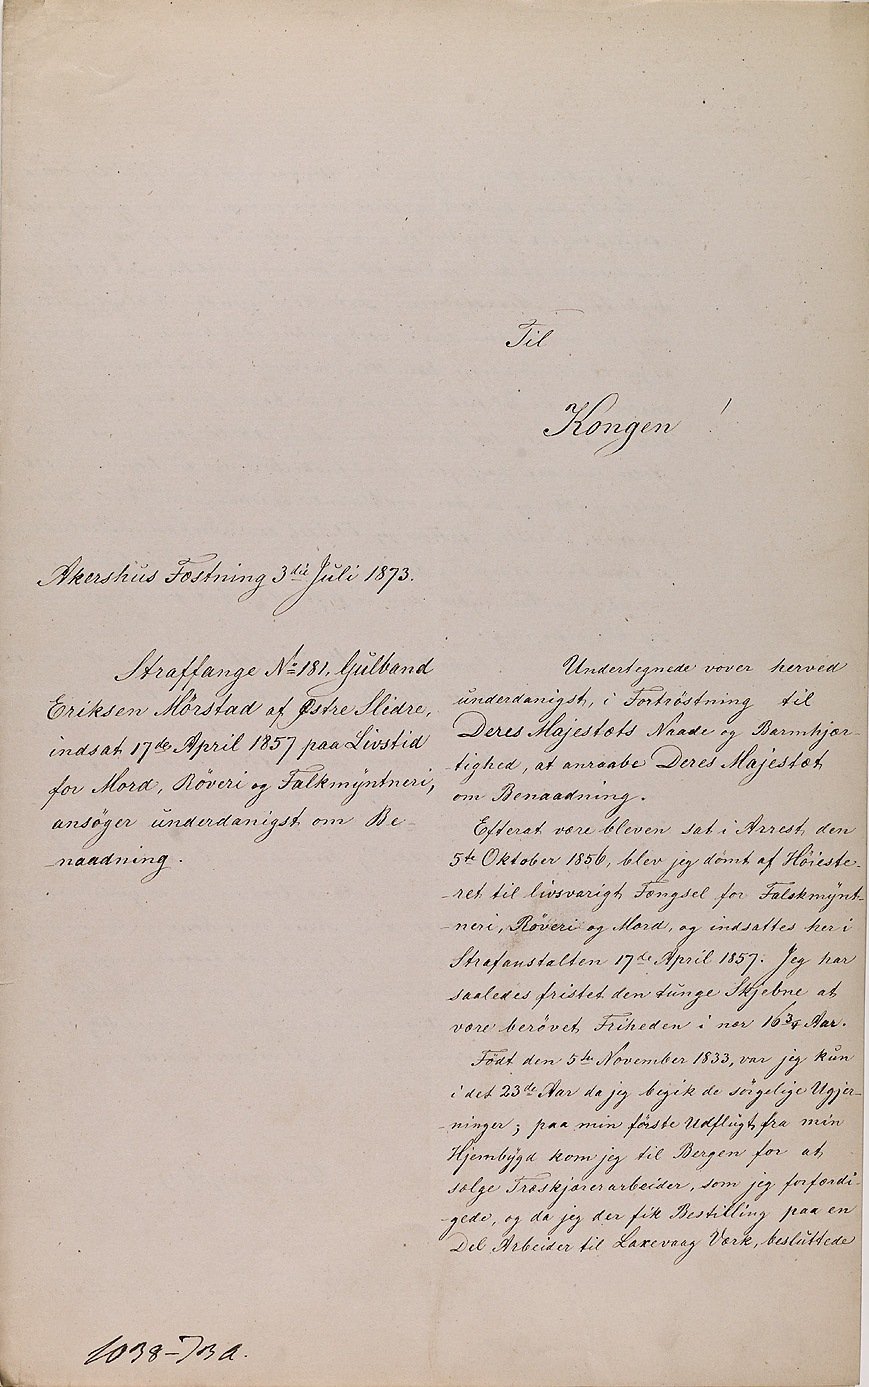 Til
Kongen !
Akershus Fæstning 3die Juli 1873.
Straffange No 181, Gulband
Eriksen Mörstad af Østre Slidre,
indsat 17de April 1857 paa Livstid
for Mord, Röveri og Falkmÿntneri,
ansöger underdanigst om Be-
-naadning.
Undertegnede vover herved
underdanigst, i Fortröstning til
Deres Majestæts Naade og Barmhjær-
-tighed, at anraabe Deres Majestæt
om Benaadning.
Efterat være bleven sat i Arrest den
5te Oktober 1856, blev jeg dömt af Höieste-
-ret til livsvarigt Fængsel for Falskmÿnt-
-neri, Röveri og Mord, og indsattes her i
Strafanstalten 17de April 1857. Jeg har
saaledes fristet den tunge Skjebne at
være berövet Friheden i nær 16 3/4 Aar.
Födt den 5te November 1833, var jeg kun
i det 23de Aar da jeg begik de sörgelige Ugjer-
-ninger; paa min förste Udflugt fra min
Hjembÿgd kom jeg til Bergen for at
sælge Træskjærerarbeider, som jeg forfærdi-
-gede, og da jeg der fik Bestilling paa en
Del Arbeider til Laxevaag Værk, besluttede
1038-73 a.